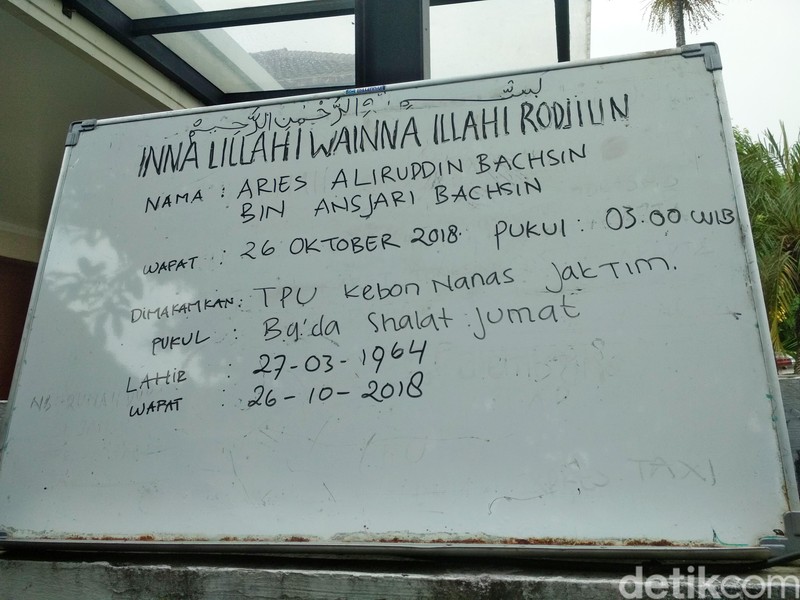 بِسْمِ اللهِ الرَّحْمٰنِ الرَّحِيْمِ
INNA LILLAHI WAINNA ILLAHI RODJIUN
NAMA : ARIES ALIRUDDIN BACHSIN
BIN ANSJARI BACHSIN
WAPAT : 26 OKTOBER 2018 PUKUl : 03.00 WIB
DIMAKAMKAN : TPU Kebon Nanas JakTIM.
PUKUL : Ba'da Shalat Jumat
LAHIR : 27-03-1964
WAPAT : 26-10-2018
TAXI
detikcom